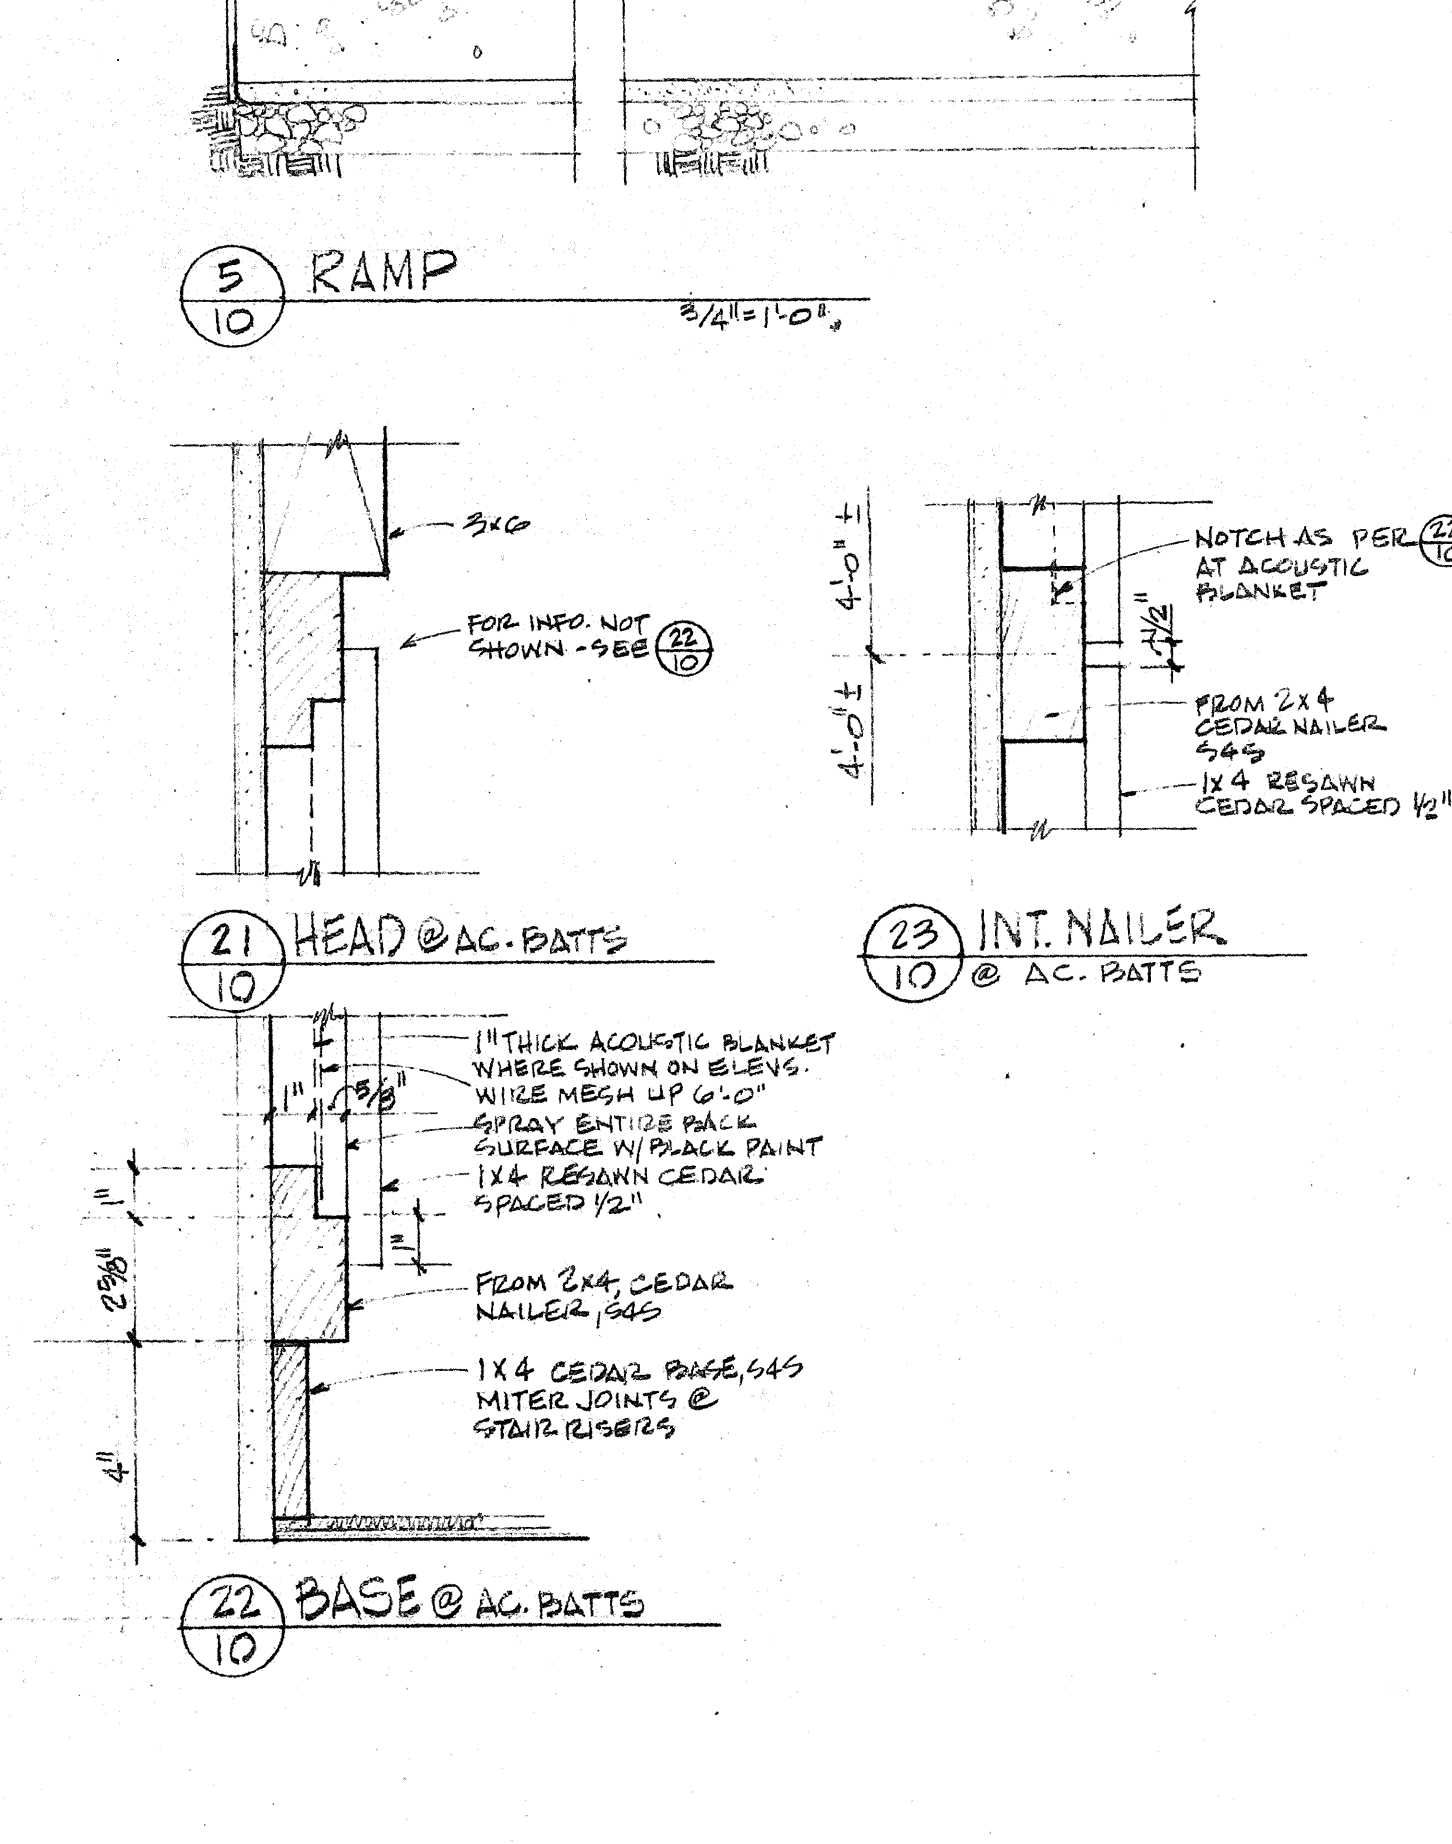 5
10
RAMP
3/4"=1'-0"
3x6
FOR INFO. NOT
SHOWN - SEE 22
10
21
10
HEAD @ AC. BATTS
4'-0" ±
4'-0" ±
NOTCH AS PER 22
10
AT ACOUSTIC
BLANKET
1/2"
FROM 2x4
CEDAR NAILER
S4S
1x4 RESAWN
CEDAR SPACED 1/2"
23
10
INT. NAILER
@ AC. BATTS
1" THICK ACOUSTIC BLANKET
WHERE SHOWN ON ELEVS.
WIRE MESH UP 6'-0"
SPRAY ENTIRE BACK
SURFACE W/ BLACK PAINT
1x4 RESAWN CEDAR
SPACED 1/2"
1"
5/8"
1"
2 5/8"
4"
1"
FROM 2x4, CEDAR
NAILER, S4S
1x4 CEDAR BASE, S4S
MITER JOINTS @
STAIR RISERS
22
10
BASE @ AC. BATTS